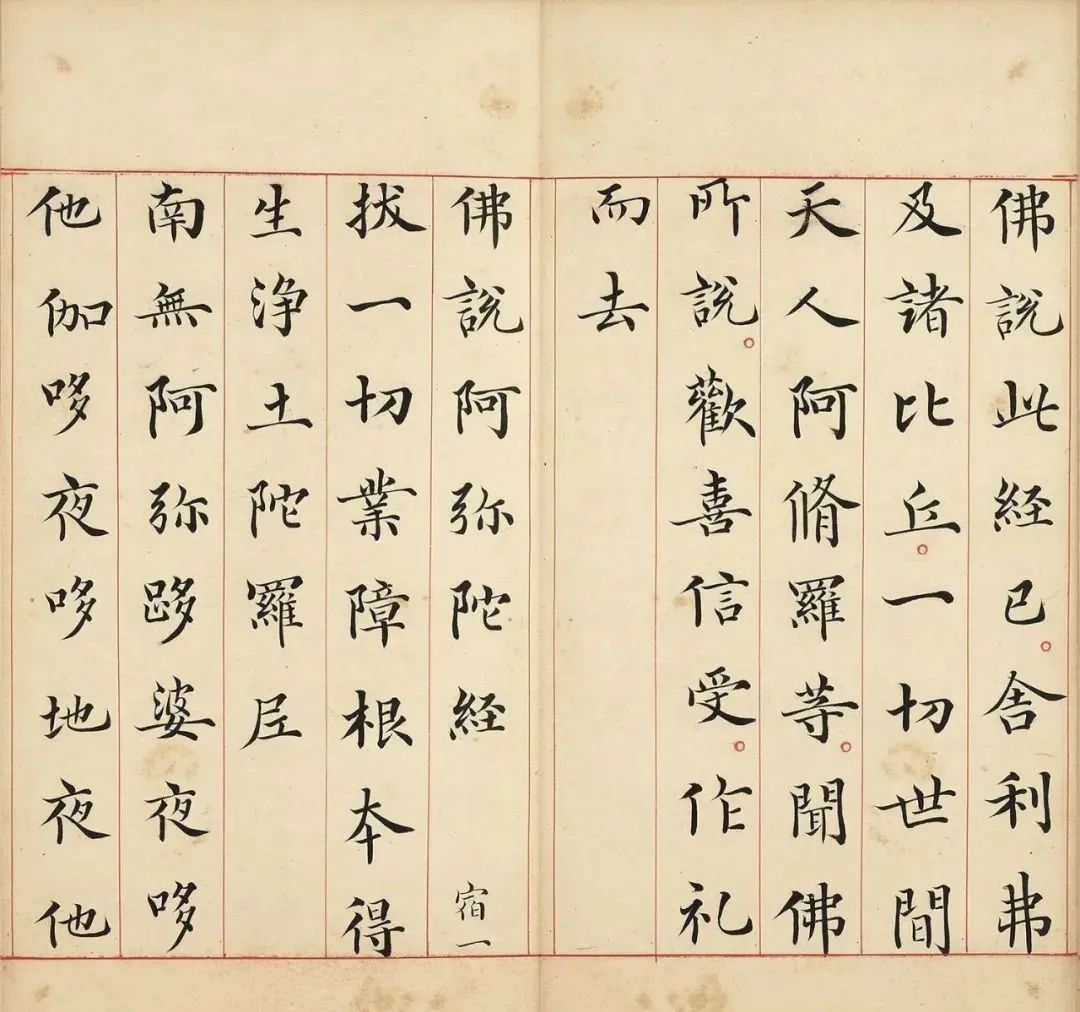 佛說此経已。舎利弗
及諸比丘。一切世間
天人阿脩羅等。聞佛
所說。歡喜信受。作礼
而去
佛說阿弥陀経
宿一
拔一切業障根本得
生浄土陀羅尼
南無阿弥哆婆夜哆
他伽哆夜哆地夜他